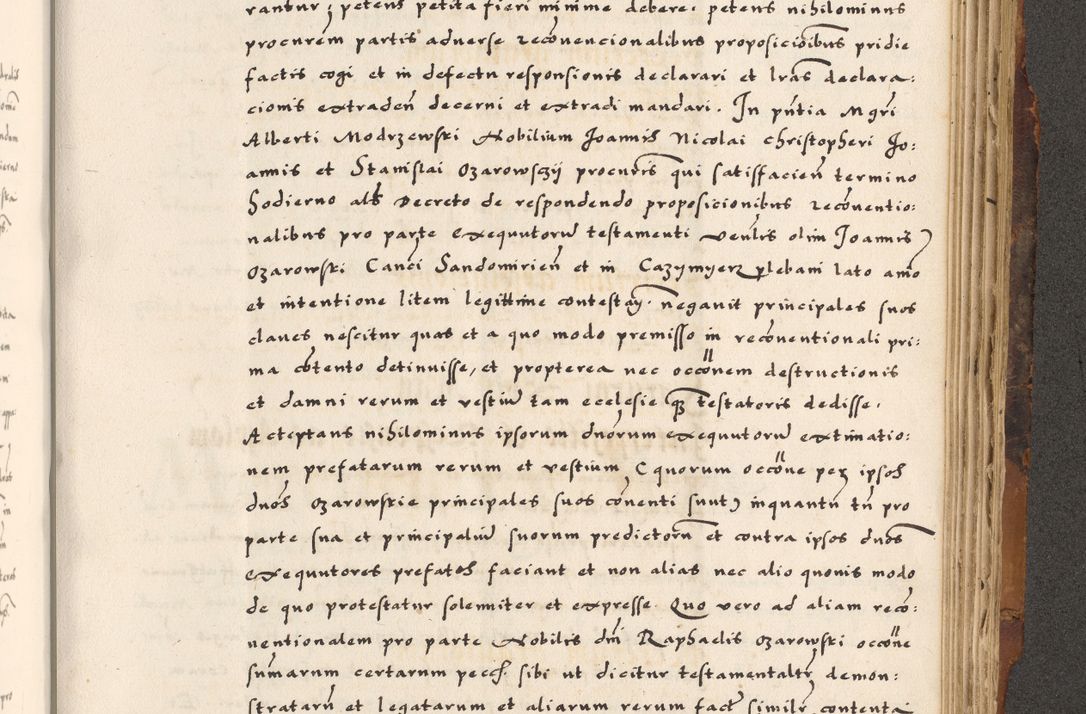 rantur, petens petita fieri minime debere, petens nihilominus
procurem partis adverse recoñvencionalibus proposicioibus pridie
factis cogi et in defectu responsionis declarari et lras declara:
cionis extraden̄ decerni et extradi mandari. In pñtia Mgri
Alberti Modrzewski Nobilium Joannis Nicolai Christopheri Jo:
annis et Stanislai Ozarowsczij procuris qui satisfacien̄ termino
hodierno als Decreto de respondendo proposicionibus recoñventio:
nalibus pro parte Exequutorū testamenti venlis olim Joannis
Ozarowski Canci Sandomirien̄ et in Cazymyerz plebani lato aīo
et intentione litem legittime contestan̄. negavit principales suos
claves nescitur quas et a quo modo premisso in recoñventionali pri:
ma cōtento detinuisse, et propterea nec occōnem destructionis
et damni rerum et vestiū tam ecclesie qz testatoris dedisse.
Acceptans nihilominus ipsorum dnorum exequutorū extimatio:
nem prefatarum rerum et vestium (quorum occōne per ipsos
dnos Ozarowskie principales suos coñventi sunt) inquantū tn̄ pro
parte sua et principaliū suorum predictorū et contra ipsos dnos
exequutores prefatos faciant et non alias nec alio quovis modo
de quo protestatur solenniter et expresse. Quo vero ad aliam recō:
nventionalem pro parte Nobilis dni Raphaelis Ozarowski occōne
sum̄arum certarum pecc. sibi ut dicitur testamentaltr, demon:
stratarū et legatarum et aliarum rerum fact similr contenta